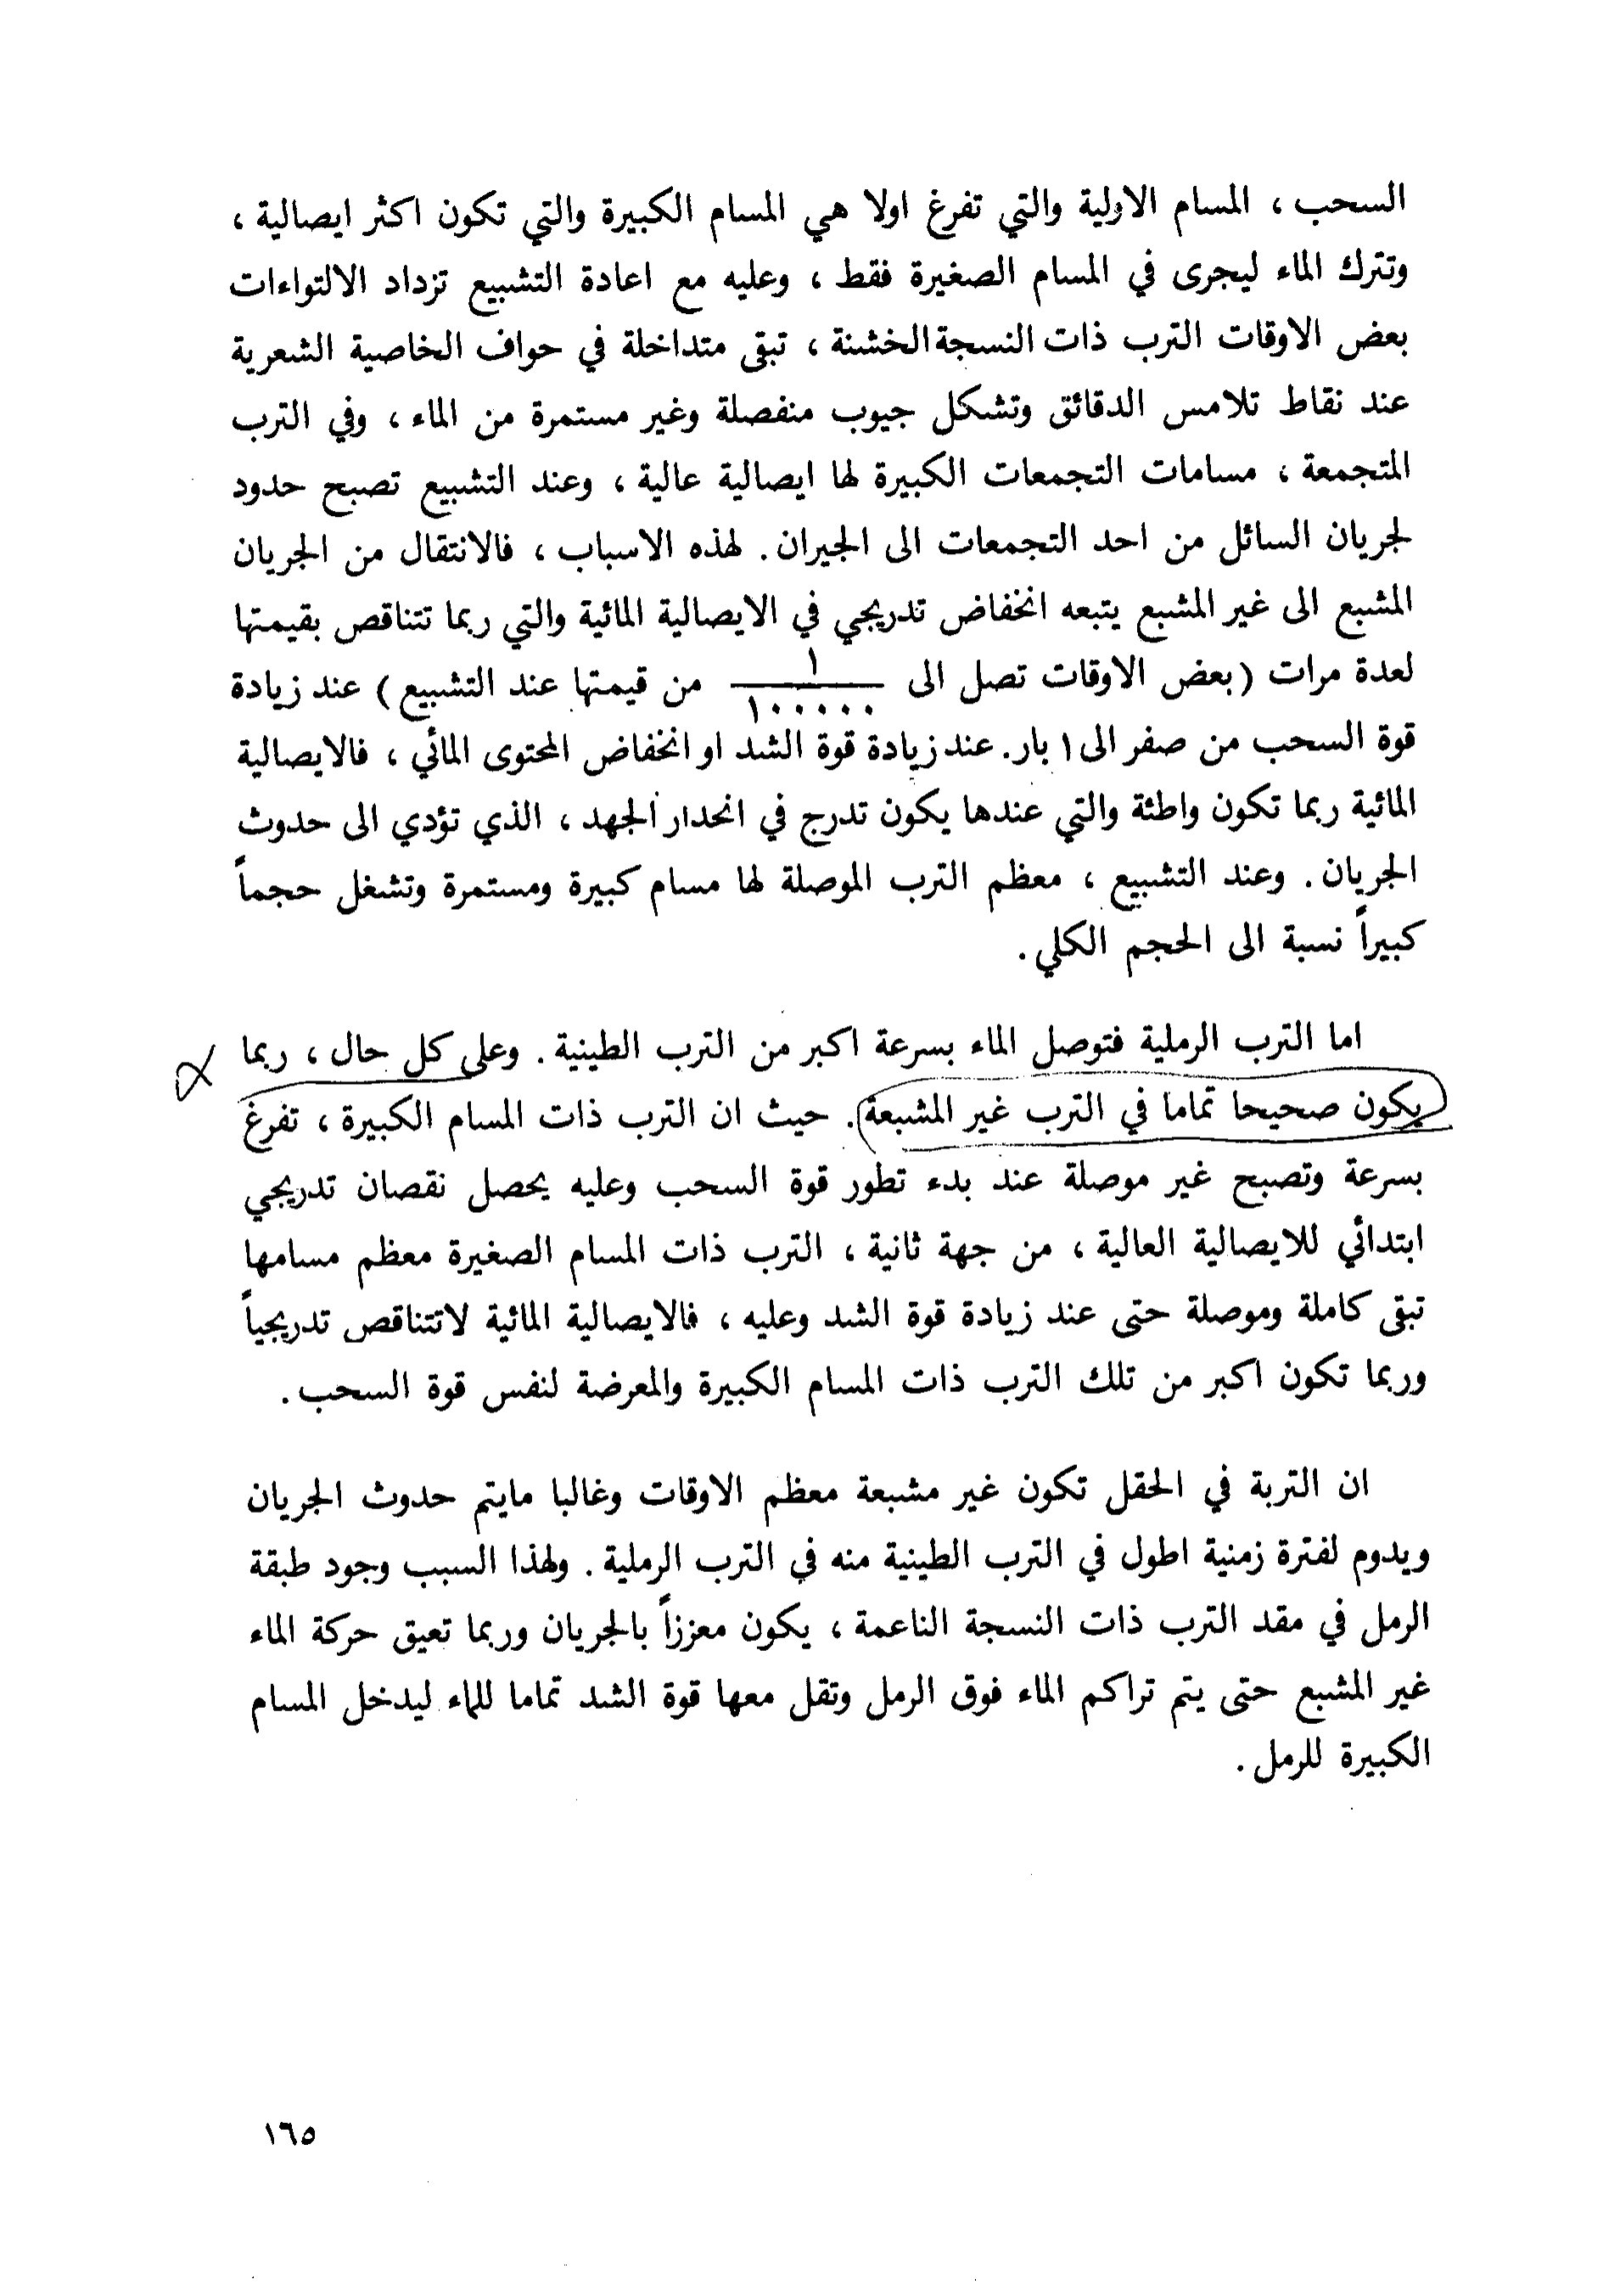 السحب ، المسام الاولية والتي تفرغ اولا هي المسام الكبيرة والتي تكون اكثر ايصالية ،
وتترك الماء ليجرى في المسام الصغيرة فقط ، وعليه مع اعادة التشبيع تزداد الالتواءات
بعض الاوقات الترب ذات النسجة الخشنة ، تبقى متداخلة في حواف الخاصية الشعرية
عند نقاط تلامس الدقائق وتشكل جيوب منفصلة وغير مستمرة من الماء ، وفي الترب
المتجمعة ، مسامات التجمعات الكبيرة لها ايصالية عالية ، وعند التشبيع تصبح حدود
لجريان السائل من احد التجمعات الى الجيران . لهذه الاسباب ، فالانتقال من الجريان
المشبع الى غير المشبع يتبعه انخفاض تدريجي في الايصالية المائية والتي ربما تتناقص بقيمتها
لعدة مرات (بعض الاوقات تصل الى ١/١٠٠٠٠٠ من قيمتها عند التشبيع) عند زيادة
قوة السحب من صفر الى ١ بار. عند زيادة قوة الشد او انخفاض المحتوى المائي ، فالايصالية
المائية ربما تكون واطئة والتي عندها يكون تدرج في انحدار الجهد ، الذي تؤدي الى حدوث
الجريان . وعند التشبيع ، معظم الترب الموصلة لها مسام كبيرة ومستمرة وتشغل حجماً
كبيراً نسبة الى الحجم الكلي .
اما الترب الرملية فتوصل الماء بسرعة اكبر من الترب الطينية . وعلى كل حال ، ربما
يكون صحيحا تماما في الترب غير المشبعة . حيث ان الترب ذات المسام الكبيرة ، تفرغ
بسرعة وتصبح غير موصلة عند بدء تطور قوة السحب وعليه يحصل نقصان تدريجي
ابتدائي للايصالية العالية ، من جهة ثانية ، الترب ذات المسام الصغيرة معظم مسامها
تبقى كاملة وموصلة حتى عند زيادة قوة الشد وعليه ، فالايصالية المائية لاتتناقص تدريجياً
وربما تكون اكبر من تلك الترب ذات المسام الكبيرة والمعرضة لنفس قوة السحب .
ان التربة في الحقل تكون غير مشبعة معظم الاوقات وغالبا مايتم حدوث الجريان
ويدوم لفترة زمنية اطول في الترب الطينية منه في الترب الرملية . ولهذا السبب وجود طبقة
الرمل في مقد الترب ذات النسجة الناعمة ، يكون معززاً بالجريان وربما تعيق حركة الماء
غير المشبع حتى يتم تراكم الماء فوق الرمل وتقل معها قوة الشد تماما للماء ليدخل المسام
الكبيرة للرمل .
١٦٥